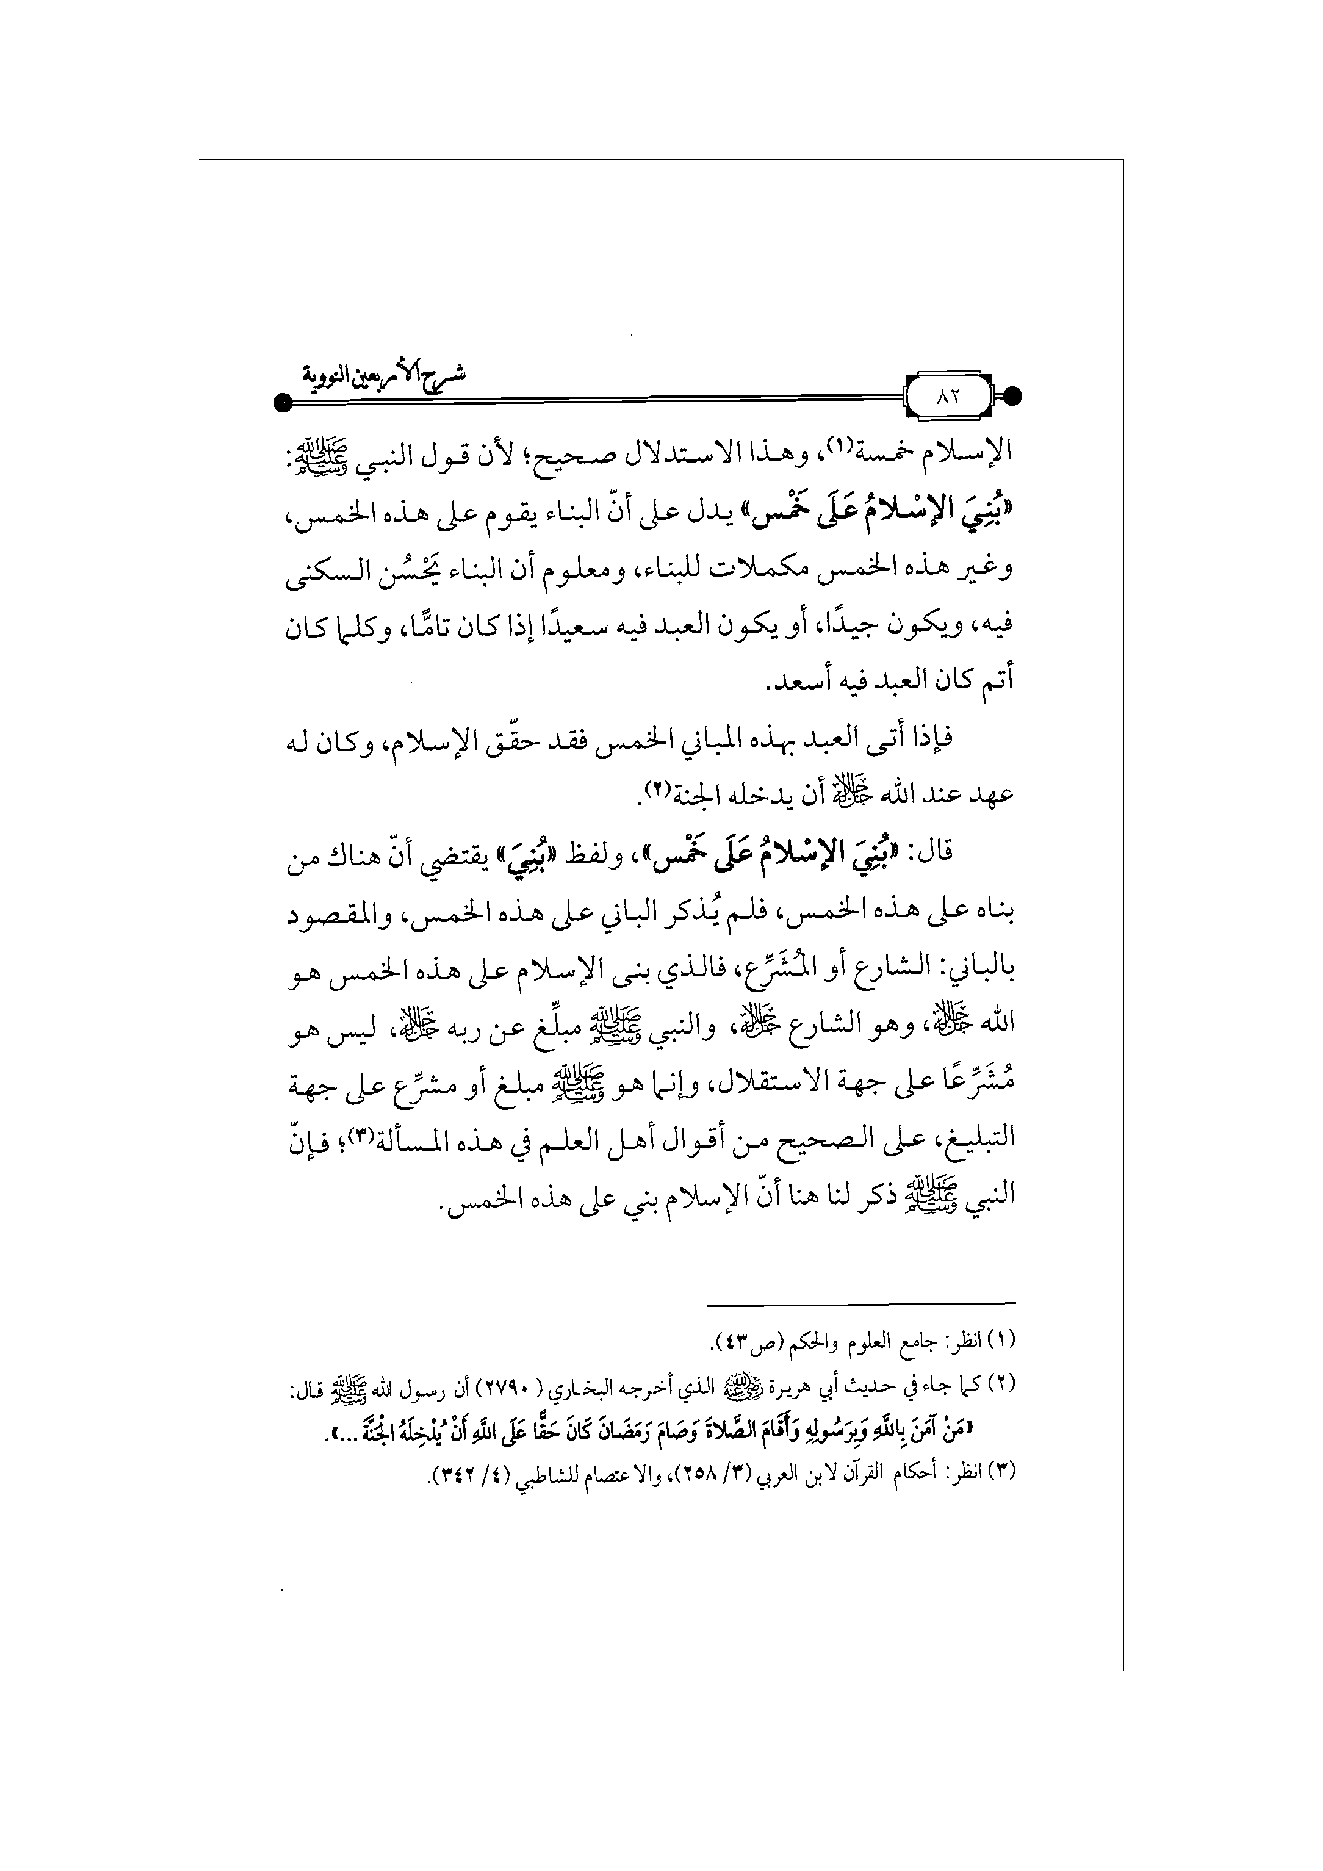 شرح الأربعين النووية
٨٢
الإسلام خمسة(١)، وهذا الاستدلال صحيح؛ لأن قول النبي ﷺ:
«بُنِيَ الإسْلامُ عَلَى خَمْس» يدل على أنّ البناء يقوم على هذه الخمس،
وغير هذه الخمس مكملات للبناء، ومعلوم أن البناء يَحْسُن السكنى
فيه، ويكون جيدًا، أو يكون العبد فيه سعيدًا إذا كان تامًّا، وكلما كان
أتم كان العبد فيه أسعد.
فإذا أتى العبد بهذه المباني الخمس فقد حقّق الإسلام، وكان له
عهد عند الله ﷻ أن يدخله الجنة(٢).
قال: «بُنِيَ الإسْلامُ عَلَى خَمْس»، ولفظ «بُنِيَ» يقتضي أنّ هناك من
بناه على هذه الخمس، فلم يُذكر الباني على هذه الخمس، والمقصود
بالباني: الشارع أو المُشَرِّع، فالذي بنى الإسلام على هذه الخمس هو
الله ﷻ، وهو الشارع ﷻ، والنبي ﷺ مبلِّغ عن ربه ﷻ، ليس هو
مُشَرِّعًا على جهة الاستقلال، وإنما هو ﷺ مبلغ أو مشرِّع على جهة
التبليغ، على الصحيح من أقوال أهل العلم في هذه المسألة(٣)؛ فإنّ
النبي ﷺ ذكر لنا هنا أنّ الإسلام بني على هذه الخمس.
(١) انظر: جامع العلوم والحكم (ص٤٣).
(٢) كما جاء في حديث أبي هريرة رضي الله عنه الذي أخرجه البخاري (٢٧٩٠) أن رسول الله ﷺ قال:
«مَنْ آمَنَ بِاللَّهِ وَبِرَسُولِهِ وَأَقَامَ الصَّلاةَ وَصَامَ رَمَضَانَ كَانَ حَقًّا عَلَى اللَّهِ أَنْ يُدْخِلَهُ الْجَنَّةَ ...».
(٣) انظر: أحكام القرآن لابن العربي (٣/ ٢٥٨)، والاعتصام للشاطبي (٤/ ٣٤٢).